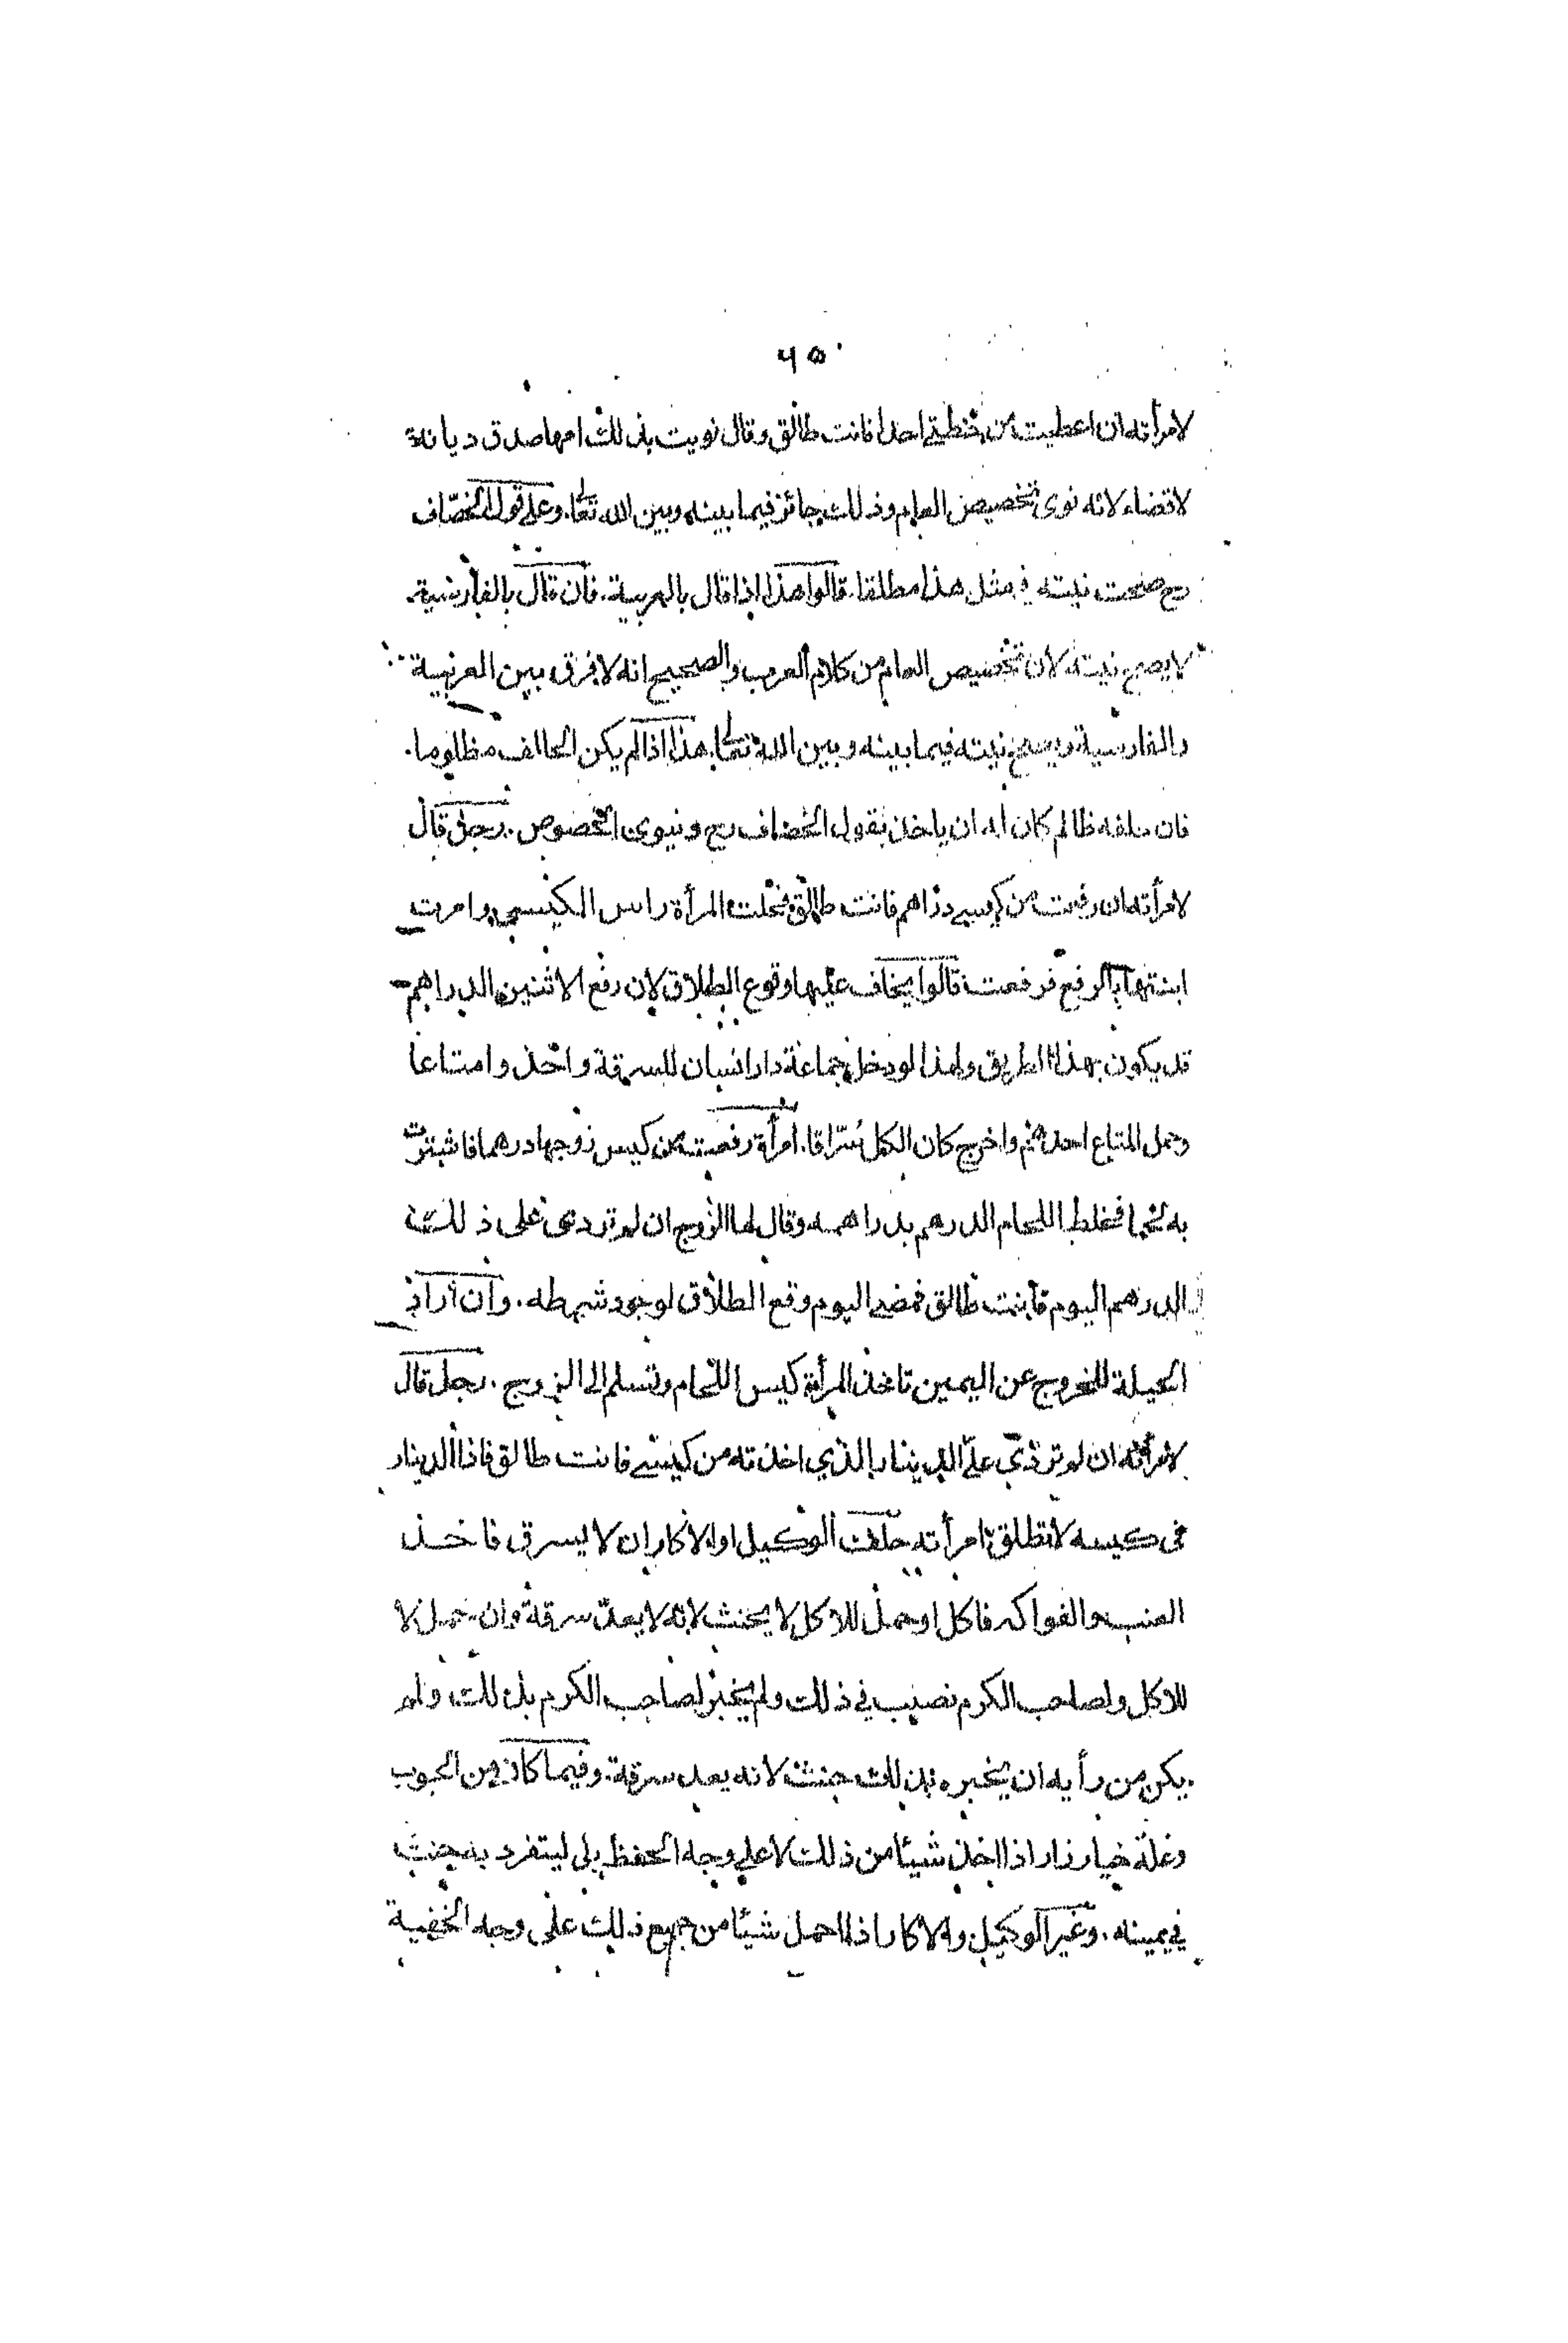 ٦٥
لامرأته ان اعطيت من حنطتي احدا فانت طالق وقال نويت بذلك امها صدق ديانة
لا قضاء لانه نوى تخصيص العام وذلك جائز فيما بينه وبين الله تعا. وعلى قول الخصّاف
رح صحت نيته في مثل هذا مطلقا. قالوا هذا اذا قال بالعربية. فان قال بالفارسية.
لا يصح نيته لان تخصيص العام من كلام العرب والصحيح انه لا فرق بين العربية
والفارسية ويصح نيته فيما بينه وبين الله تعا. هذا اذا لم يكن الحالف مظلوما.
فان حلفه ظالم كان له ان ياخذ بقول الخصاف رح وينوى الخصوص. رجل قال
لامرأته ان رفعت من كيسي دراهم فانت طالق فحلت المرأة راس الكيس وامرت
ابنتها بالرفع فرفعت قالوا يخاف عليها وقوع الطلاق لان رفع الاثنين الدراهم
قد يكون بهذا الطريق ولهذا لو دخل جماعة دار انسان للسرقة واخذوا متاعا
وحمل المتاع احدهم واخرج كان الكل سرّاقا. امرأة رفعت من كيس زوجها درهما فاشترت
به لحما فخلط اللحام الدرهم بدراهمه وقال لها الزوج ان لم تردى على ذلك
الدرهم اليوم فانت طالق فمضى اليوم وقع الطلاق لوجود شرطه. وان اراد
الحيلة للخروج عن اليمين تاخذ المرأة كيس اللحام وتسلم الى الزوج. رجل قال
لامرأته ان لم تردّي علىّ الدينار الذي اخذته من كيسى فانت طالق فاذا الدينار
فى كيسه لا تطلق امرأته حلف الوكيل او الاكار ان لا يسرق فاخذ
العنب والفواكه فاكل او حمل للاكل لا يحنث لانه لا يعدّ سرقة وان حمل لا
للاكل ولصاحب الكرم نصيب في ذلك ولم يخبر لصاحب الكرم بذلك ولم
يكن من رأيه ان يخبره بذلك حنث لانه يعد سرقة. وفيما كان من الحبوب
وغلة خيارزار اذا اخذ شيئا من ذلك لا على وجه الحفظ بلى ليتفرد به حنث
في يمينه. وغير الوكيل والاكار اذا حمل شيئا من جميع ذلك على وجه الخفية